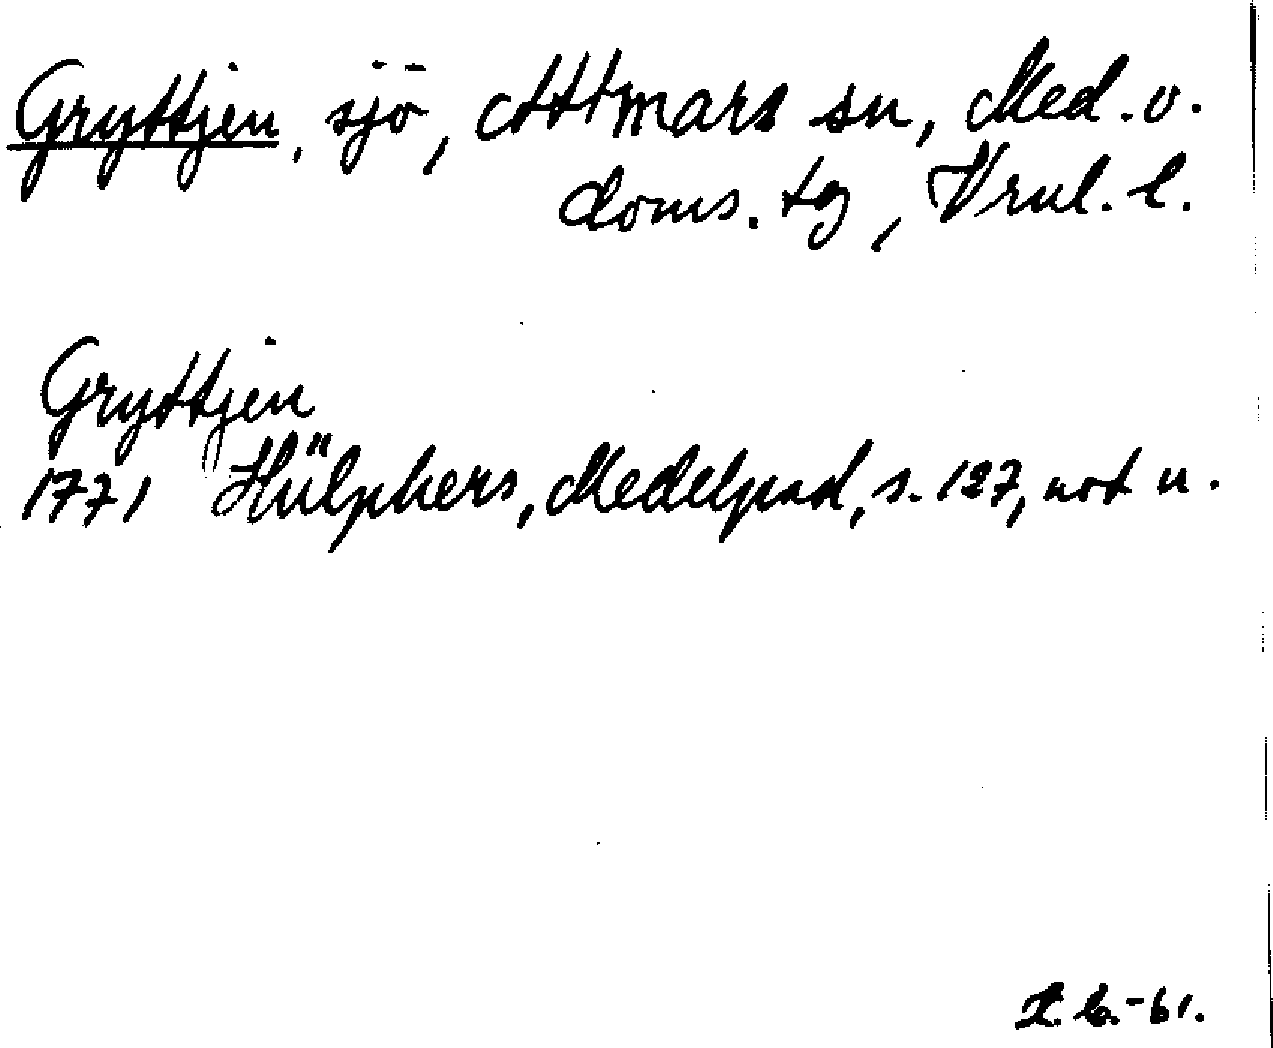 Gryttjen, sjö, Attmars sn, Med. v.
doms. tg, Vrnl. l.
Gryttjen
1771 Hülphers, Medelpad, s. 127, not u.
-61.